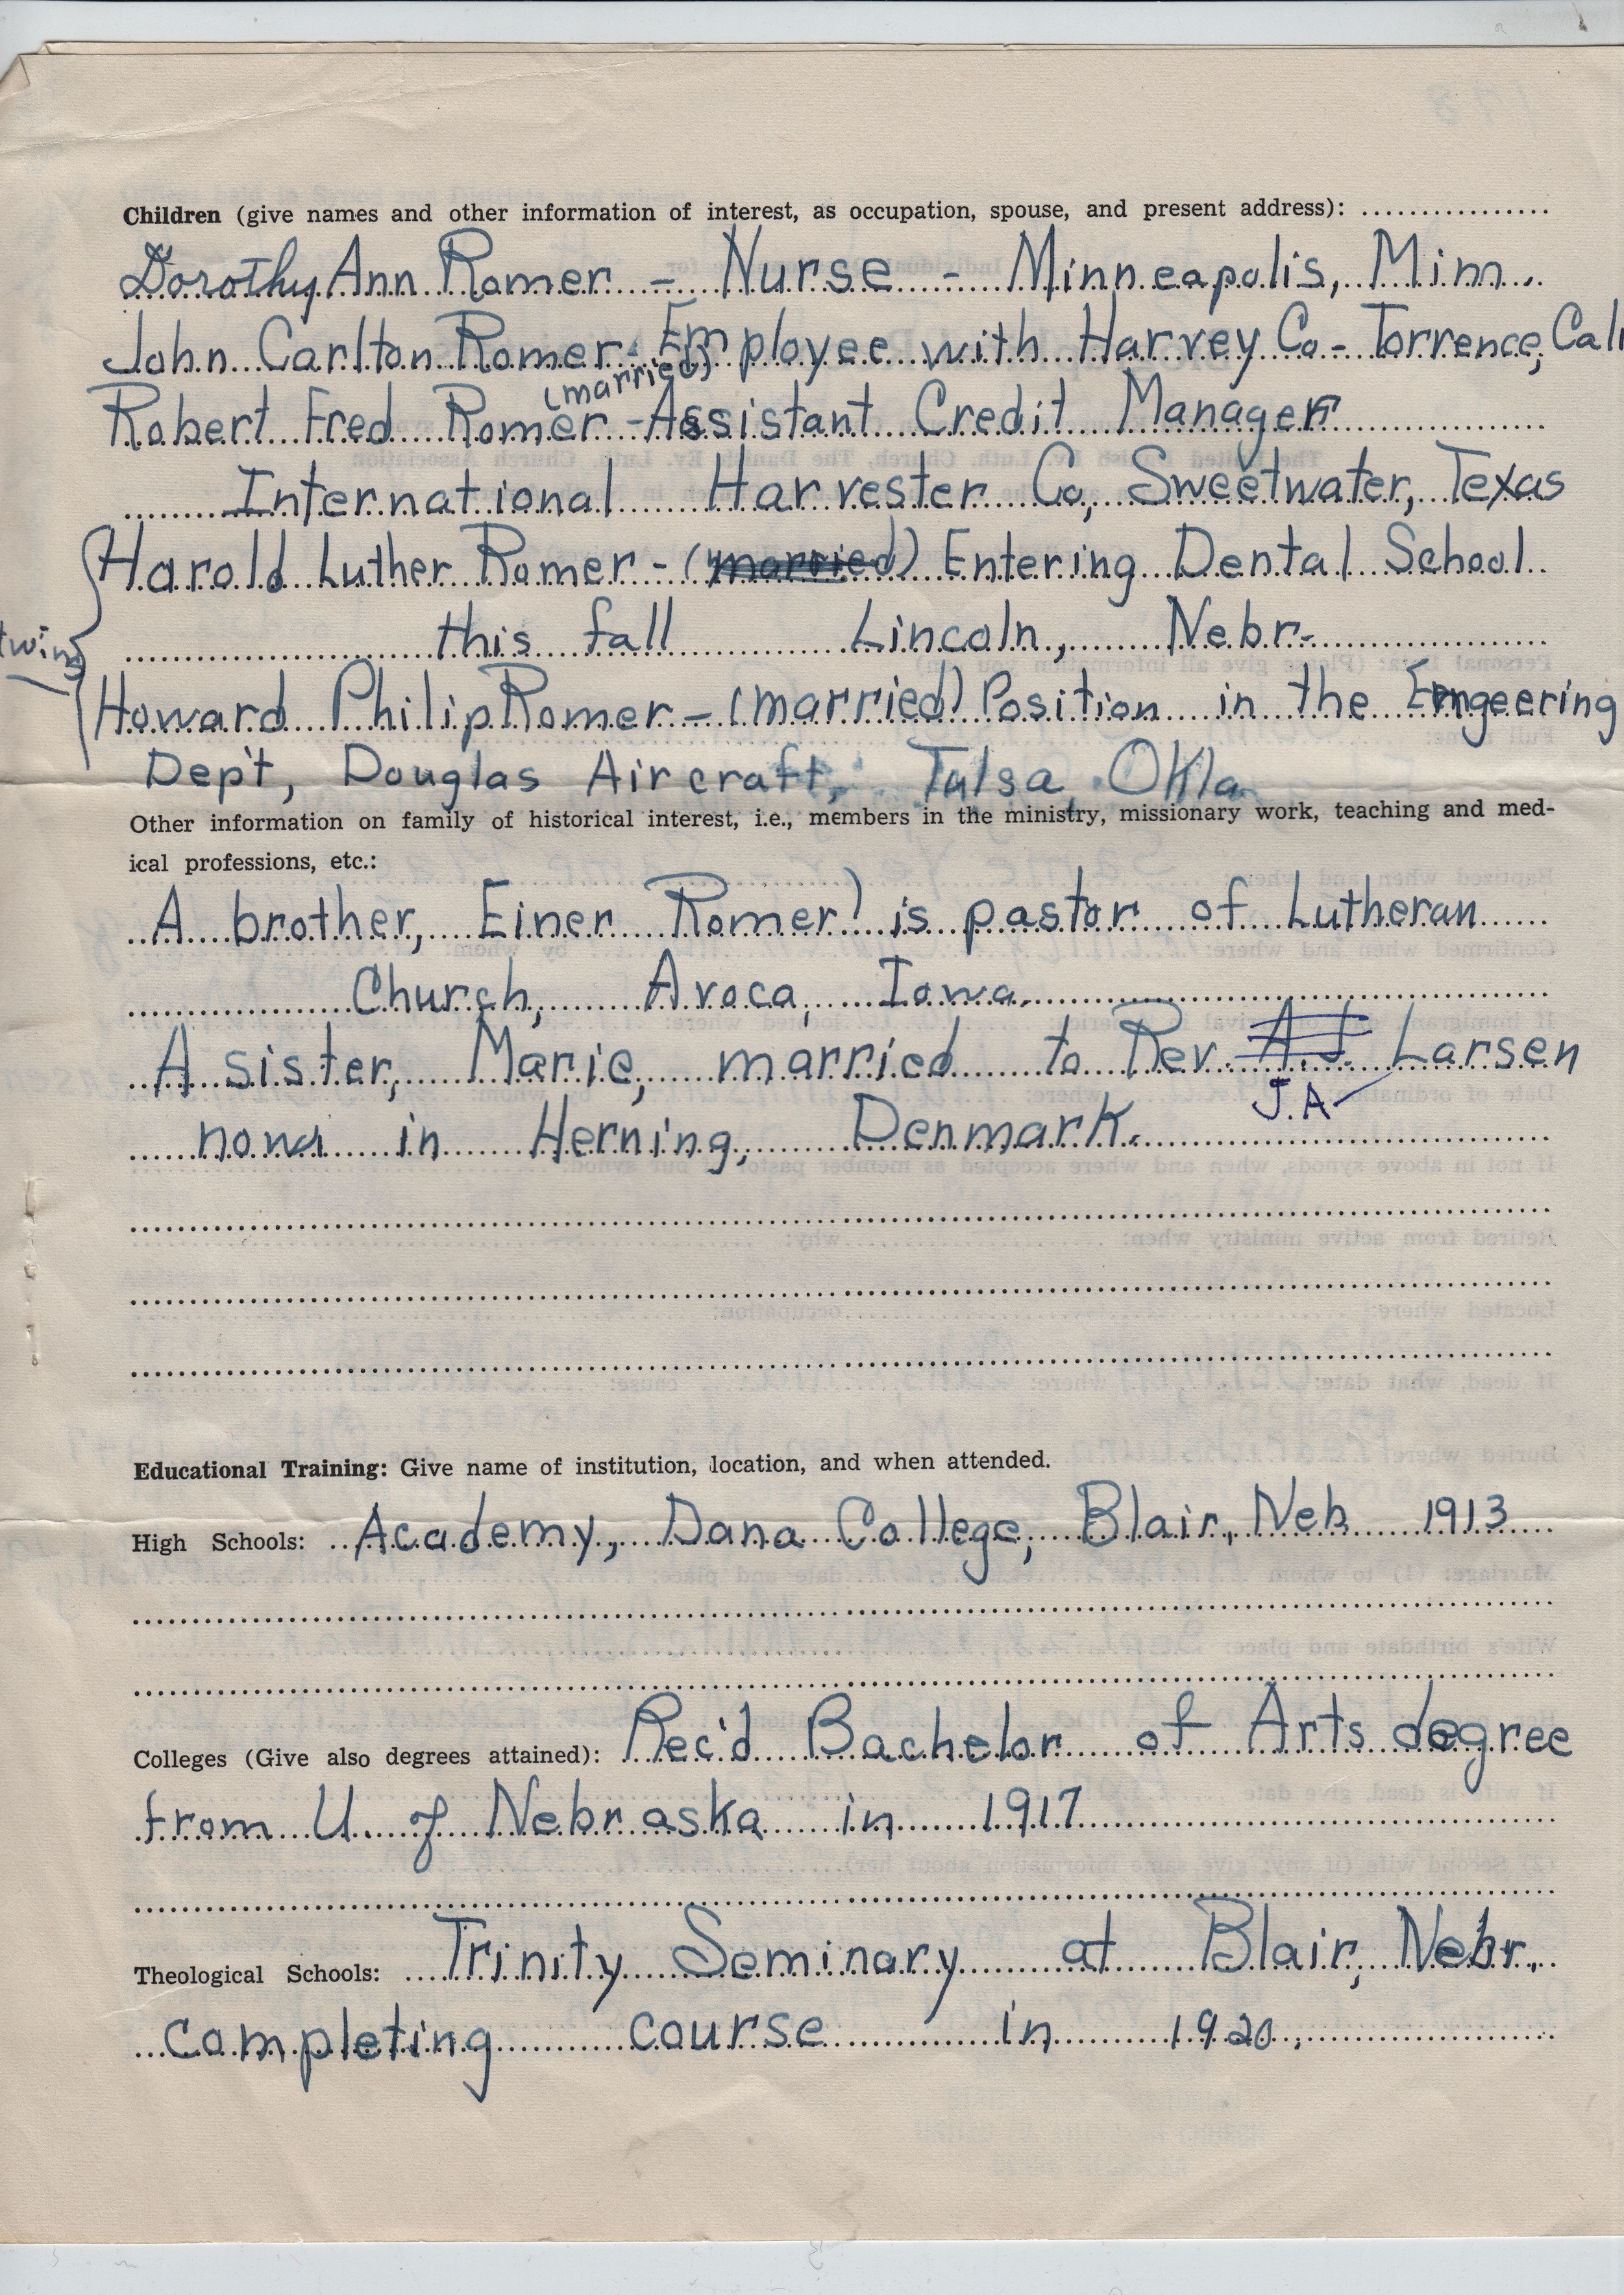 Children (give names and other information of interest, as occupation, spouse, and present address):
Dorothy Ann Romer - Nurse - Minneapolis, Minn.
John Carlton Romer - Employee with Harvey Co - Torrence, Cali
(married)
Robert Fred Romer - Assistant Credit Manager
International Harvester Co, Sweetwater, Texas
Harold Luther Romer - (married) Entering Dental School
this fall Lincoln, Nebr.
twins
Howard Philip Romer - (married) Position in the Engeering
Dep't, Douglas Aircraft, Tulsa, Okla
Other information on family of historical interest, i.e., members in the ministry, missionary work, teaching and med-
ical professions, etc.:
A brother, Einer Romer, is pastor of Lutheran
Church, Avoca, Iowa.
A sister, Marie, married to Rev. A.J. Larsen
J.A
now in Herning, Denmark.
Educational Training: Give name of institution, location, and when attended.
High Schools: Academy, Dana College, Blair, Neb 1913
Colleges (Give also degrees attained): Rec'd Bachelor of Arts degree
from U. of Nebraska in 1917
Theological Schools: Trinity Seminary at Blair, Nebr.
completing course in 1920.